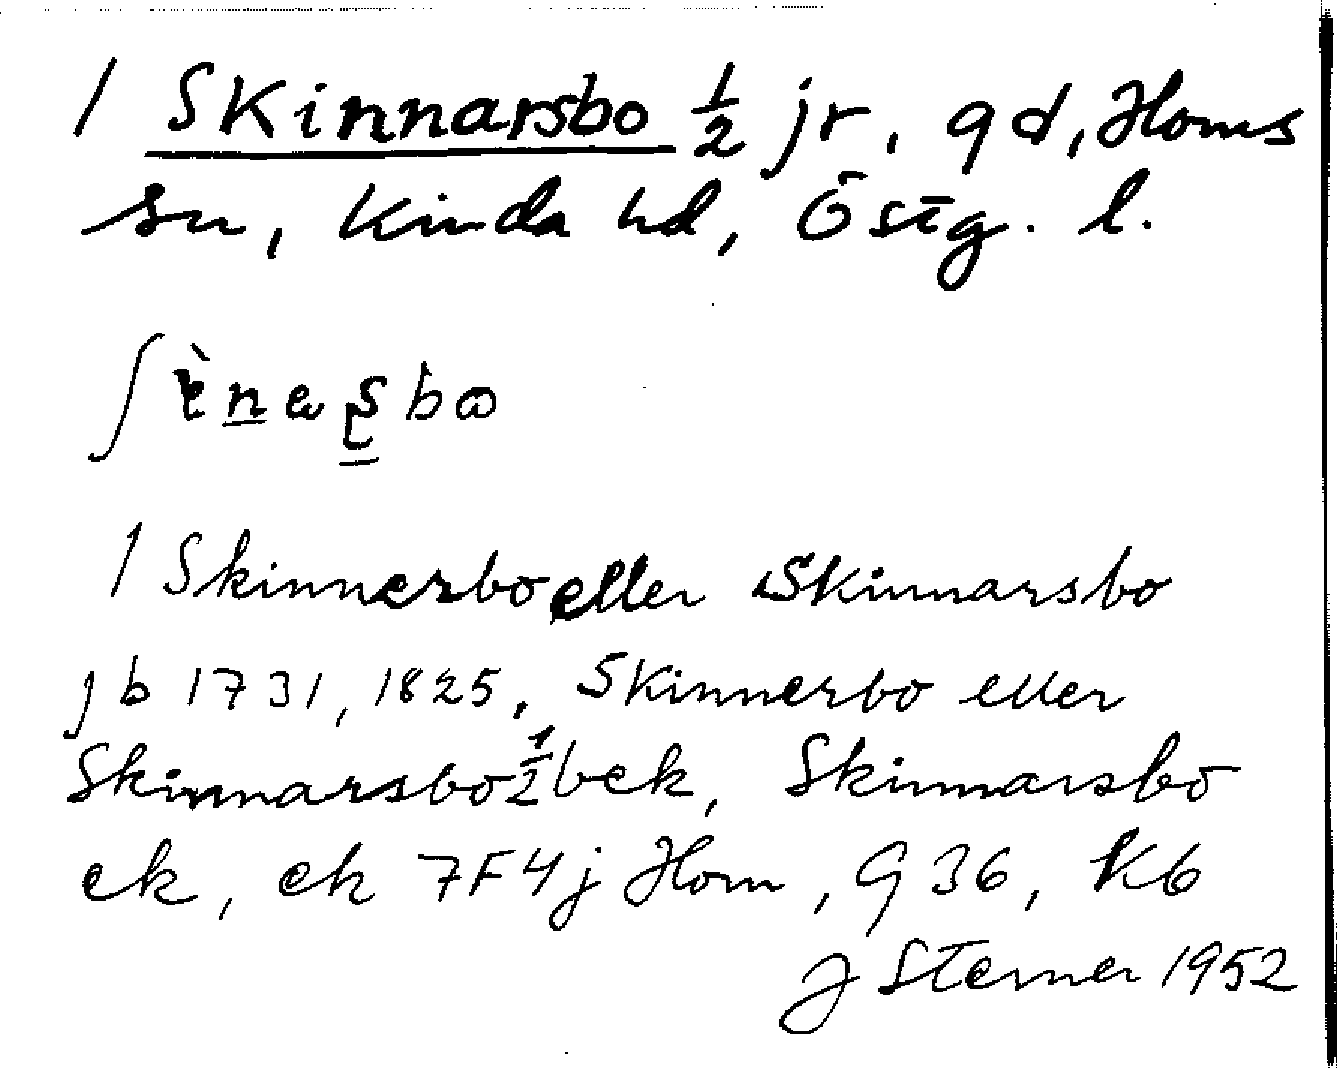 / Skinnarsbo ½ jr, gd, Horns
sn, Kinda hd, Östg. l.
/ Skinnerbo eller Skinnarsbo
jb 1731, 1825, Skinnerbo eller
Skinnarsbo ½ bek, Skinnarsbo
ek, ek 7F4j Horn, G 36, K6
J Sterner 1952